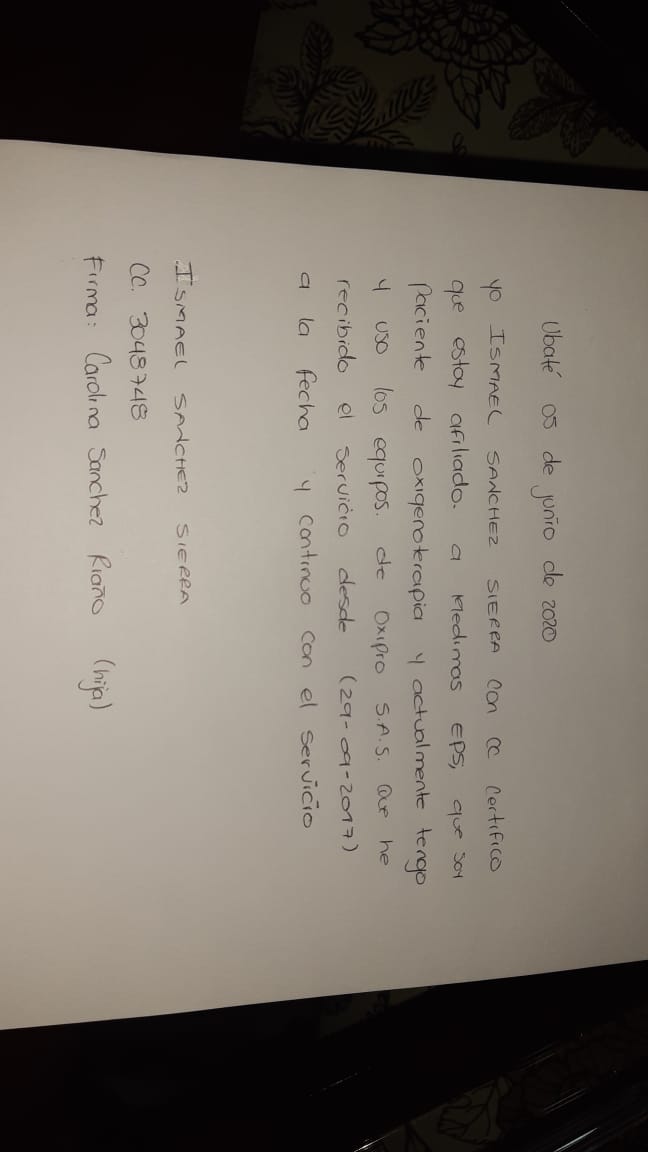 Ubaté 05 de junio de 2020
yo ISMAEL SANCHEZ SIERRA con CC certifico
que estoy afiliado. a Medimas EPS, que soy
Paciente de oxigenoterapia y actualmente tengo
y uso los equipos. de oxipro S.A.S. Que he
recibido el servicio desde (29-09-2017)
a la fecha y continuo con el servicio
ISMAEL SANCHEZ SIERRA
CC. 3048748
Firma: Carolina Sanchez Riaño (hija)